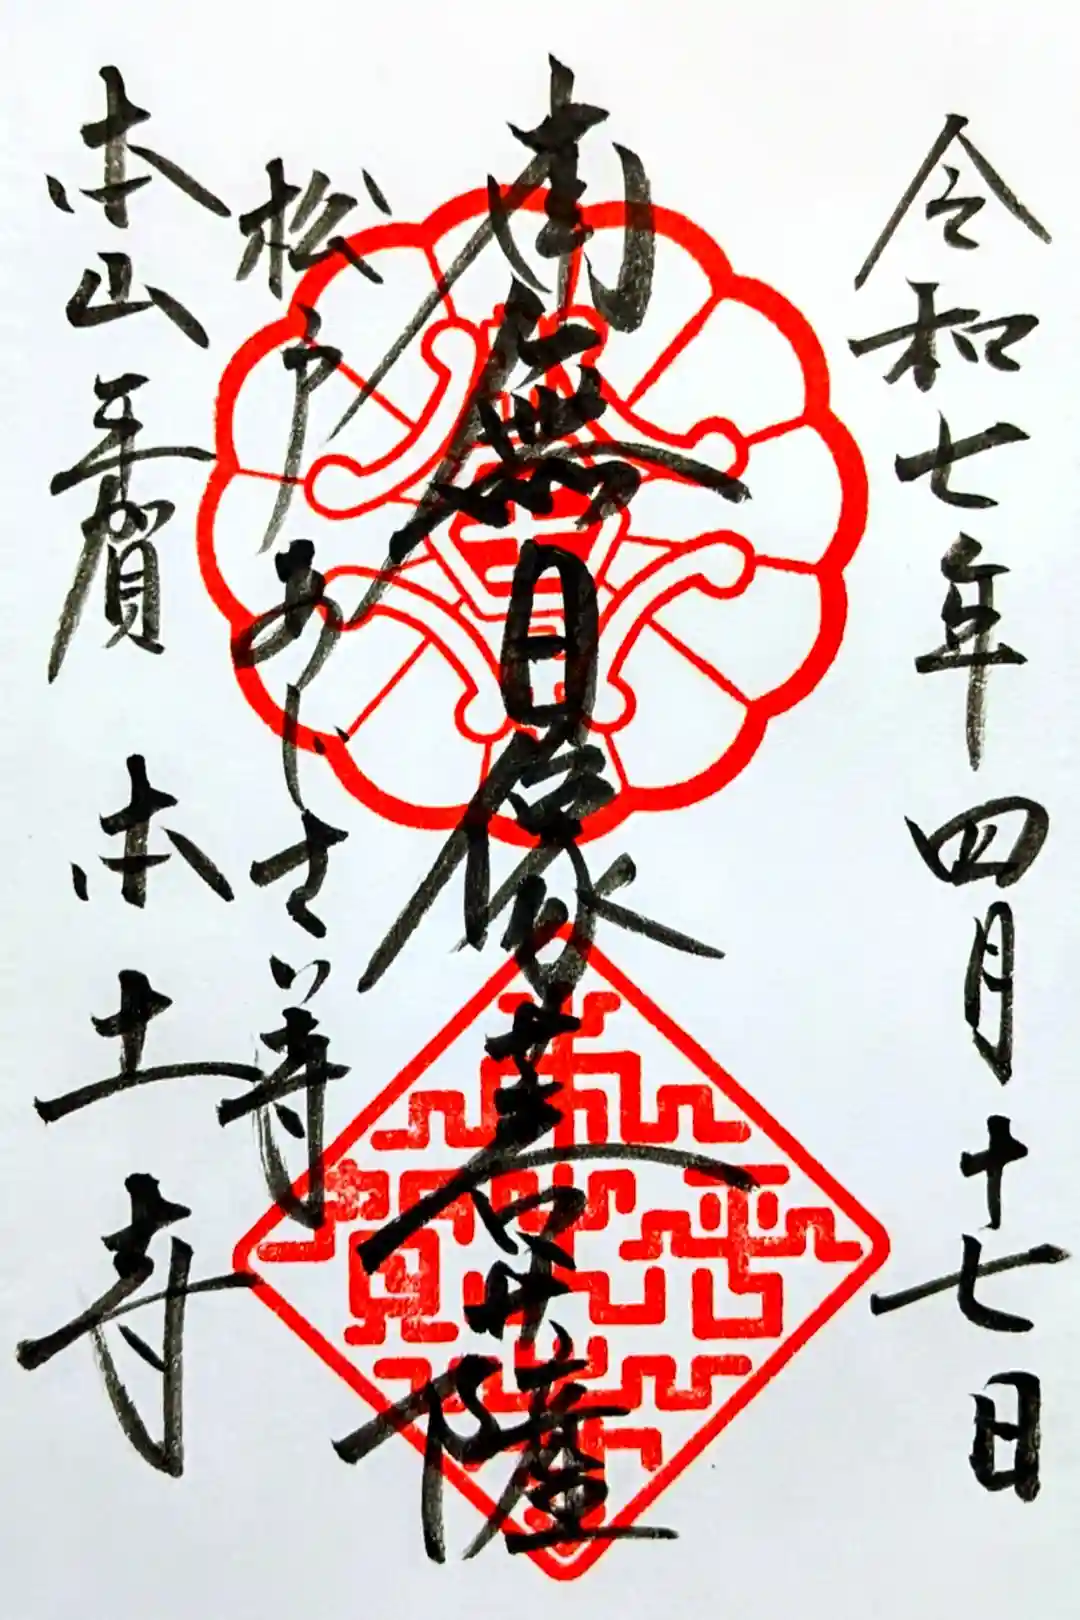 令和七年四月十七日
南無日像菩薩
松戸あじさい寺
本山平賀 本土寺